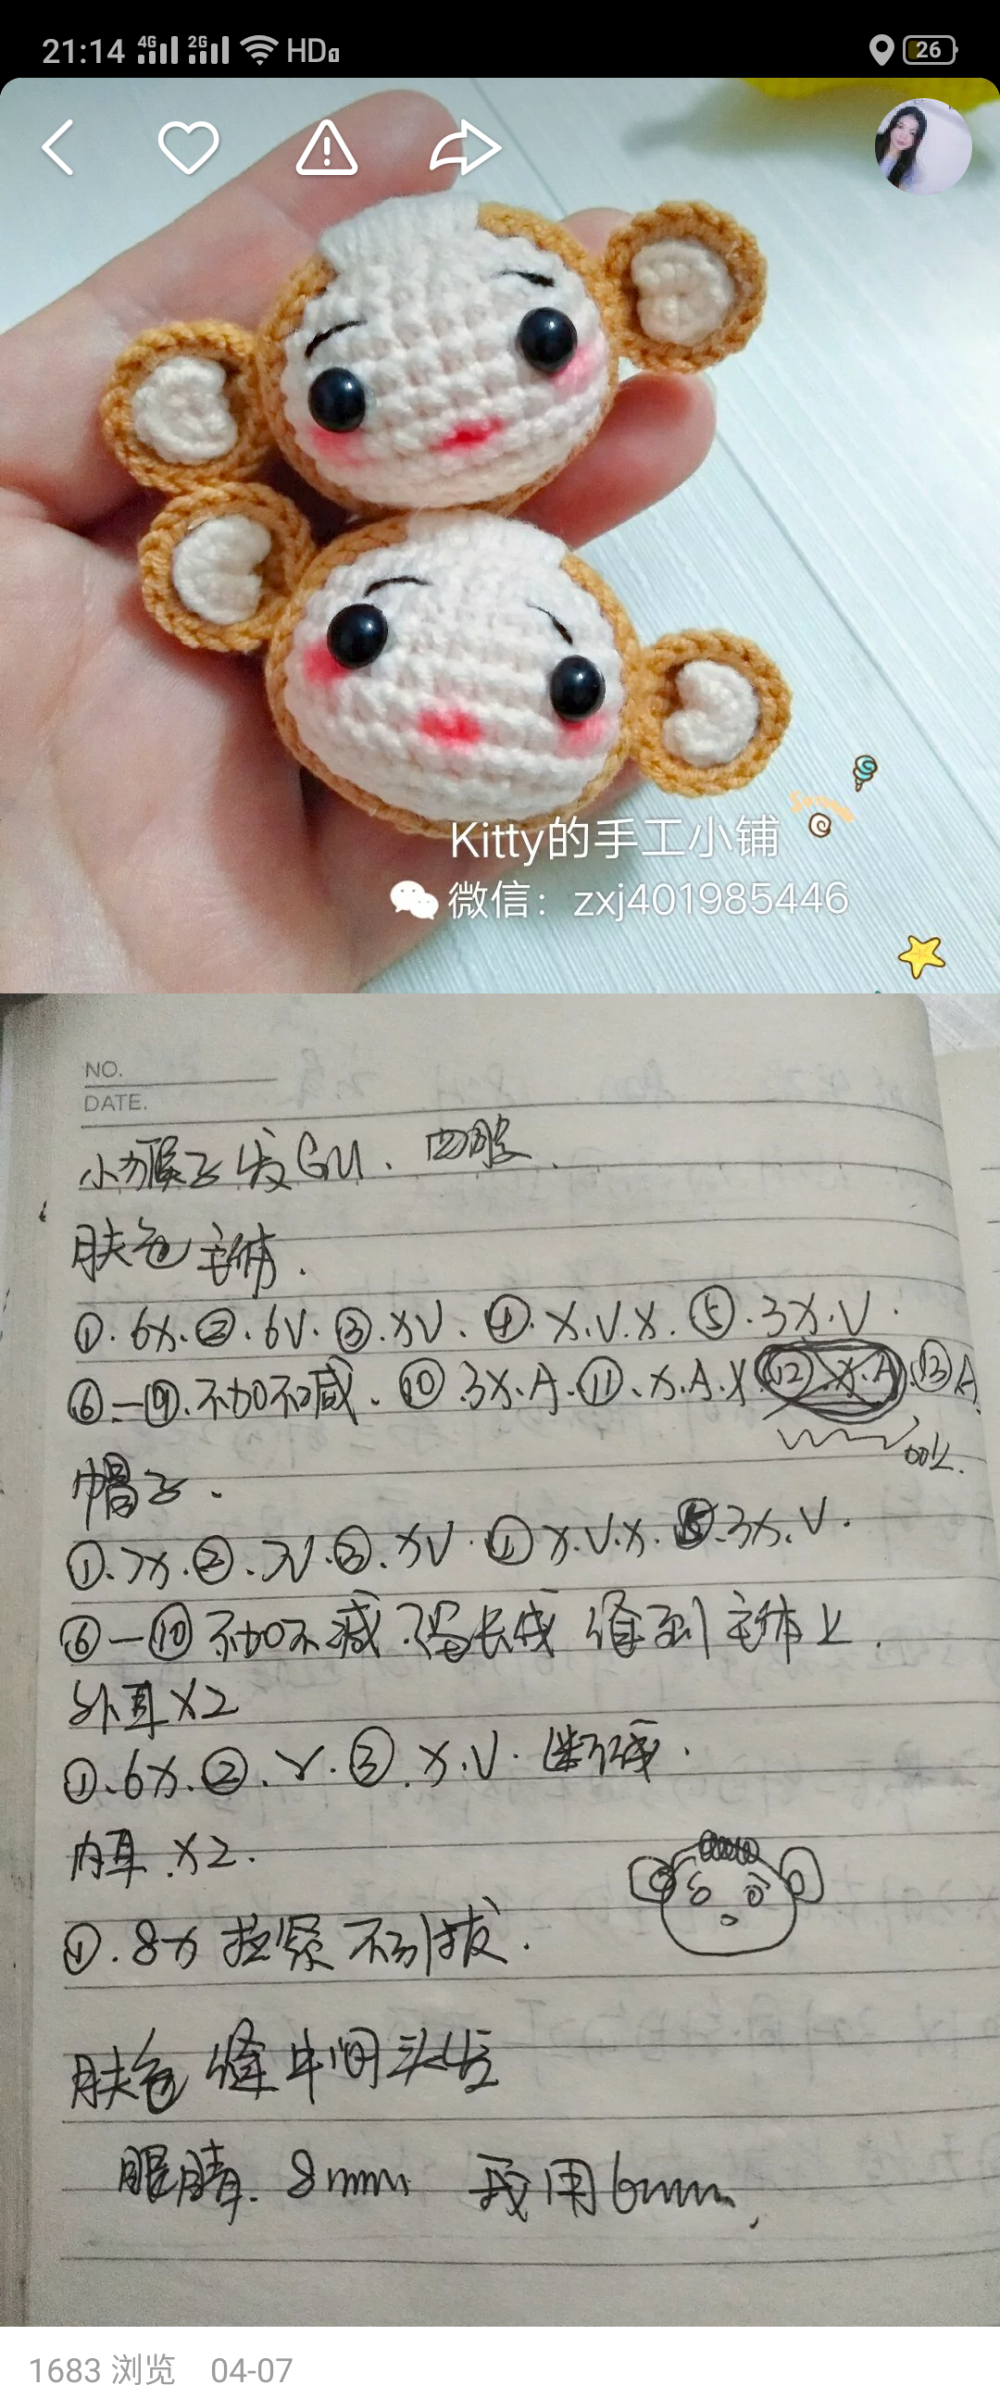 21:14 4G 2G HD 26
Kitty的手工小铺
微信：zxj401985446
NO.
DATE.
小猴子发GU. 四股.
肤色主体.
①.6X.②.6V.③.XV.④.X.V.X.⑤.3X.V.
⑥—⑨.不加不减.⑩.3X.A.⑪.X.A.X.⑫.X.A.⑬A.
帽子.
①.7X.②.7V.③.XV.④X.V.X.⑤.3X.V.
⑥—⑩不加不减.留长线 缝到主体上.
外耳X2
①.6X.②.V.③.X.V.断线.
内耳.X2.
①.8X拉紧不引拔.
肤色缝中间头发
眼睛.8mm 我用6mm.
1683 浏览 04-07